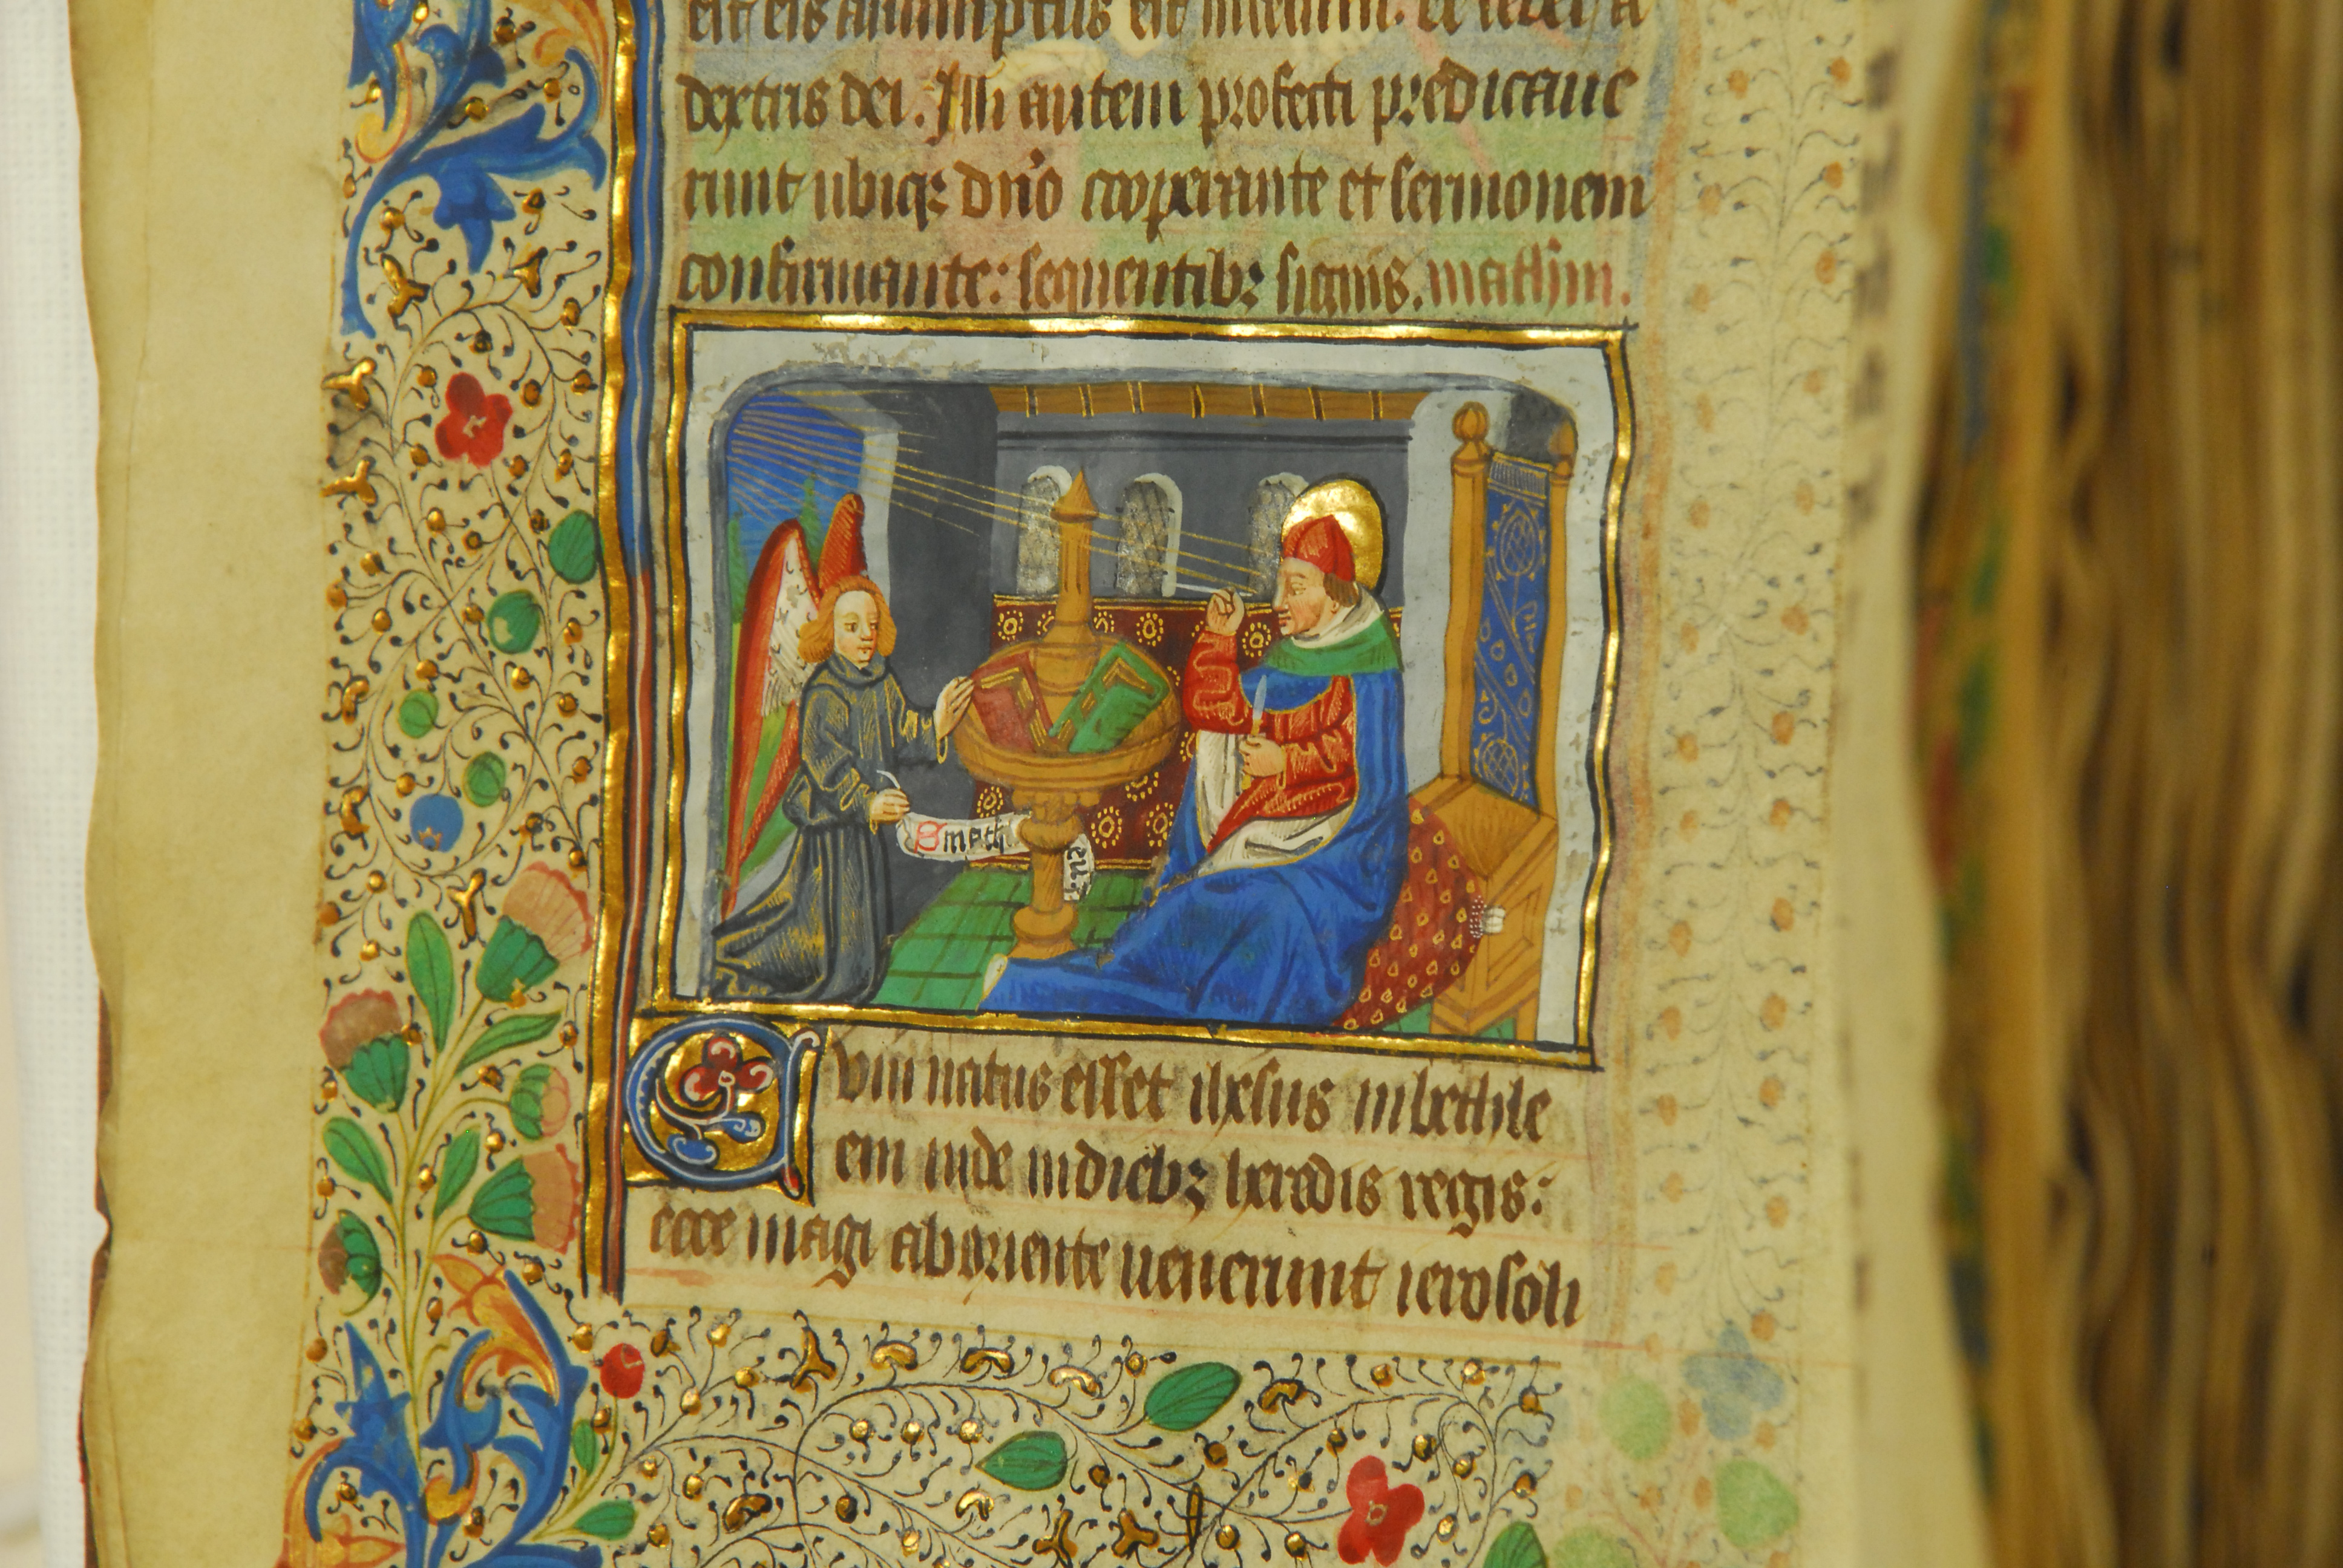 est eis assumptus est in celum. et sedet a
dextris dei. Illi autem profecti predicaue
runt ubiqꝫ dn̄o cooperante et sermonem
confirmante: sequentibꝫ signis. math̄m.
S math
Cum natus esset ihesus in bethle
em iude in diebꝫ herodis regis:
ecce magi ab oriente uenerunt ierosoli